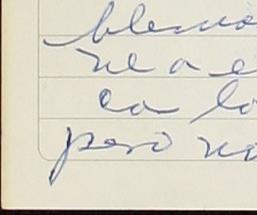 blemas
ne a e
ca lo
pero no